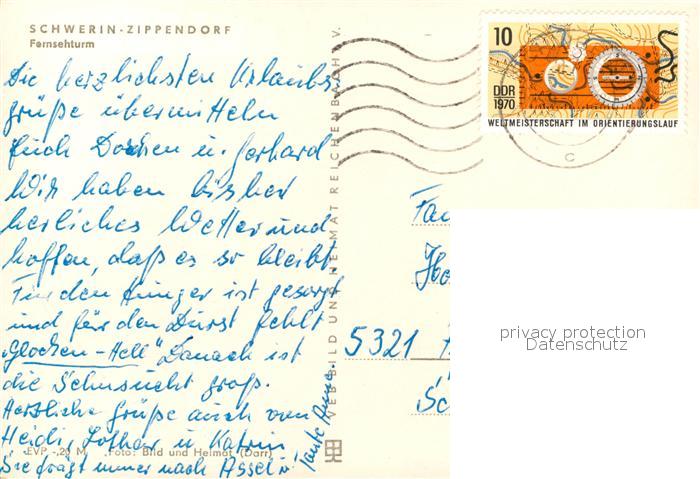 SCHWERIN-ZIPPENDORF
Fernsehturm
Die herzlichsten Urlaubs-
grüße übermitteln
Euch Dorchen u. Gerhard
Wir haben bisher
herrliches Wetter und
hoffen, daß es so bleibt.
Für den Hunger ist gesorgt
und für den Durst fehlt
„Glocken-Hell" Danach ist
die Sehnsucht groß.
Herzliche Grüße auch von
Heidi, Lothar u. Katrin
Sie frägt immer nach Assel u.
Tante Anne.
EVP -,20 M Foto: Bild und Heimat (Darr)
VEB BILD UND HEIMAT REICHENBACH I. V.
10
DDR
1970
WELTMEISTERSCHAFT IM ORIENTIERUNGSLAUF
C
Fa
5321
privacy protection
Datenschutz